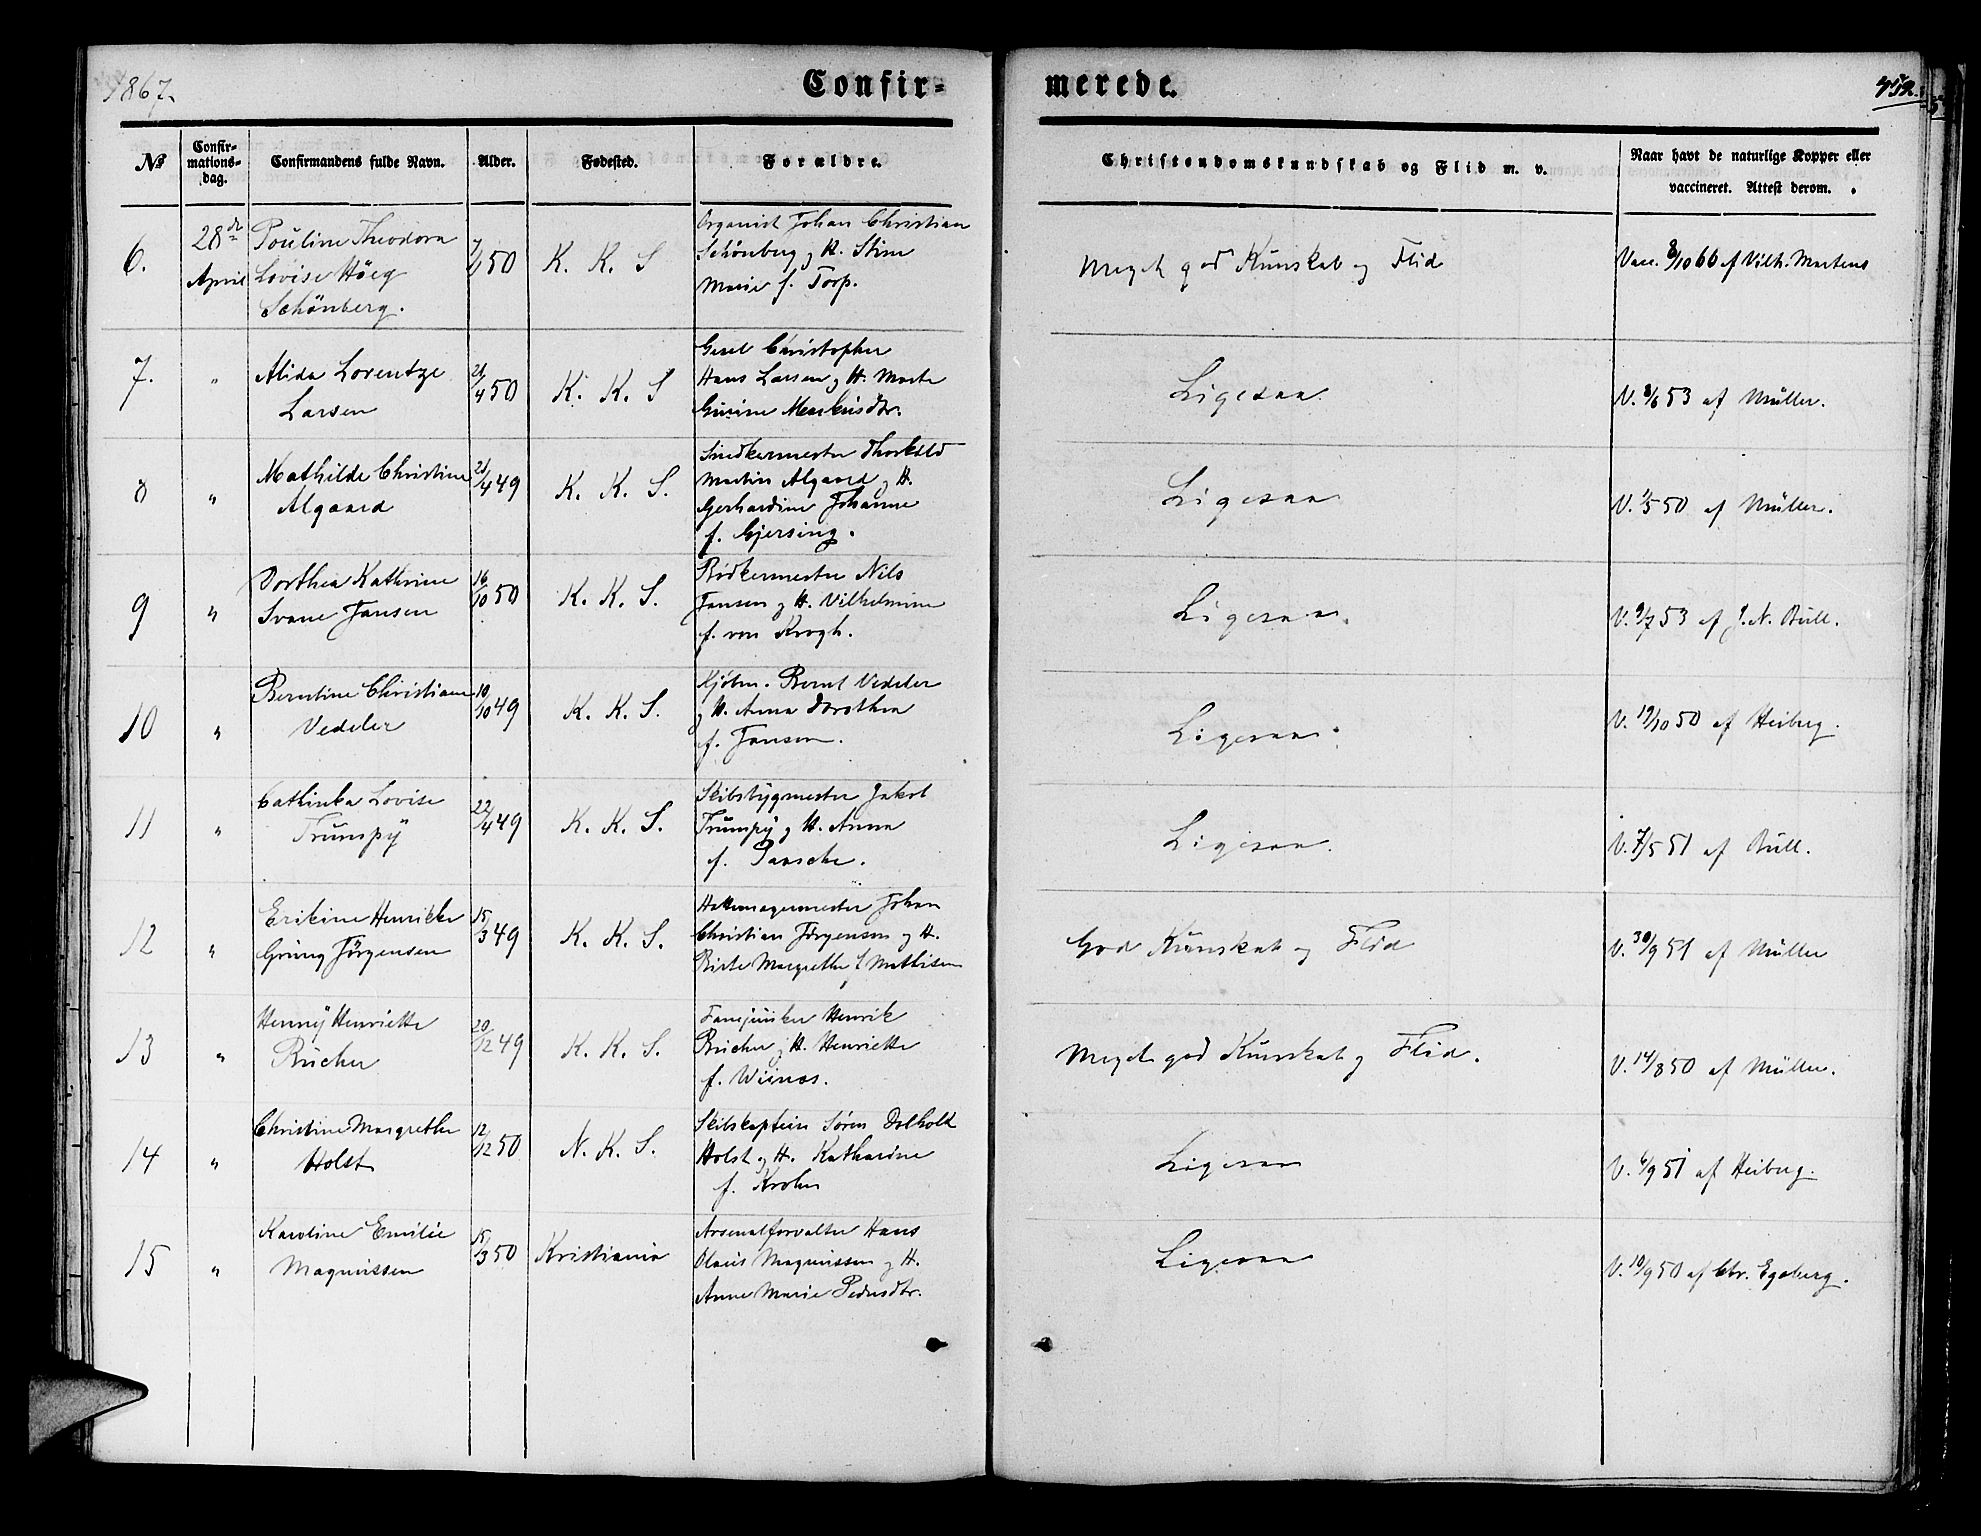 1867.
Confir-
merede.
452.
No
Confir-
mations-
dag.
Confirmandens fulde Navn.
Alder.
Fødested.
Forældre.
Christendomskundskab og Flid m. v.
Naar havt de naturlige Kopper eller
vaccineret. Attest derom.
6.
28de
April
Pouline Theodora
Lovise Höeg
Schönberg.
50
K. K. S
Organist Johan Christian
Schönberg og H. Stine
Marie f. Torp.
Meget god Kunskab og Flid
Vacc. 8/10 66 af Vilh. Martens
7.
"
Alida Lorentze
Larsen
21/4 50
K. K. S
Gesel Christopher
Hans Larsen og H. Marte
Gurine Markusdtr.
Ligesaa
V. 8/6 53 af Müller.
8
"
Mathilde Christine
Algaard
21/4 49
K. K. S.
Snedkermester Thorkild
Martin Algaard og H.
Gerhardine Johanne
f. Gjersing.
Ligesaa
V. 50 af Müller.
9
"
Dorthea Kathrine
Svane Jansen
16/10 50
K. K. S.
Bödkermester Nils
Jansen og H. Vilhelmine
f. von Krogh.
Ligesaa.
V. 9/7 53 af J. N. Bull.
10
"
Berntine Christiane
Vedeler
10/10 49
K. K. S.
Kjöbm. Bernt Vedeler
og H. Anna Dorothea
f. Jansen.
Ligesaa.
V. 19/10 50 af Heiberg.
11
"
Cathinka Lovise
Trumpÿ
22/4 49
K. K. S.
Skibsbygmester Jakob
Trumpÿ og H. Anna
f. Paasche.
Ligesaa.
V. 7/5 51 af Bull.
12
"
Erikine Henrikke
Grüng Jörgensen
15/3 49
K. K. S.
Hattemagermester Johan
Christian Jörgensen og H.
Birte Margrethe f. Mathisen
God Kunskab og Flid
V. 30/9 51 af Müller
13
"
Hennÿ Henriette
Bücher
20/12 49
K. K. S.
Fanejunker Henrik
Bücher og H. Henriette
f.
Meget god Kunskab og Flid.
V. 14/8 50 af Müller.
14
"
Christine Margrethe
Holst
12/12 50
N. K. S.
Skibskaptein Sören
Holst og H. Katharine
f. Krohn
Ligesaa
V. 6/9 51 af Heiberg.
15
"
Karoline Emilie
Magnussen
15/3 50
Kristiania
Arsenalforvalter Hans
Olaus Magnussen og H.
Anne Marie Pedersdtr.
Ligesaa
V. 10/9 50 af Chr. Egeberg.